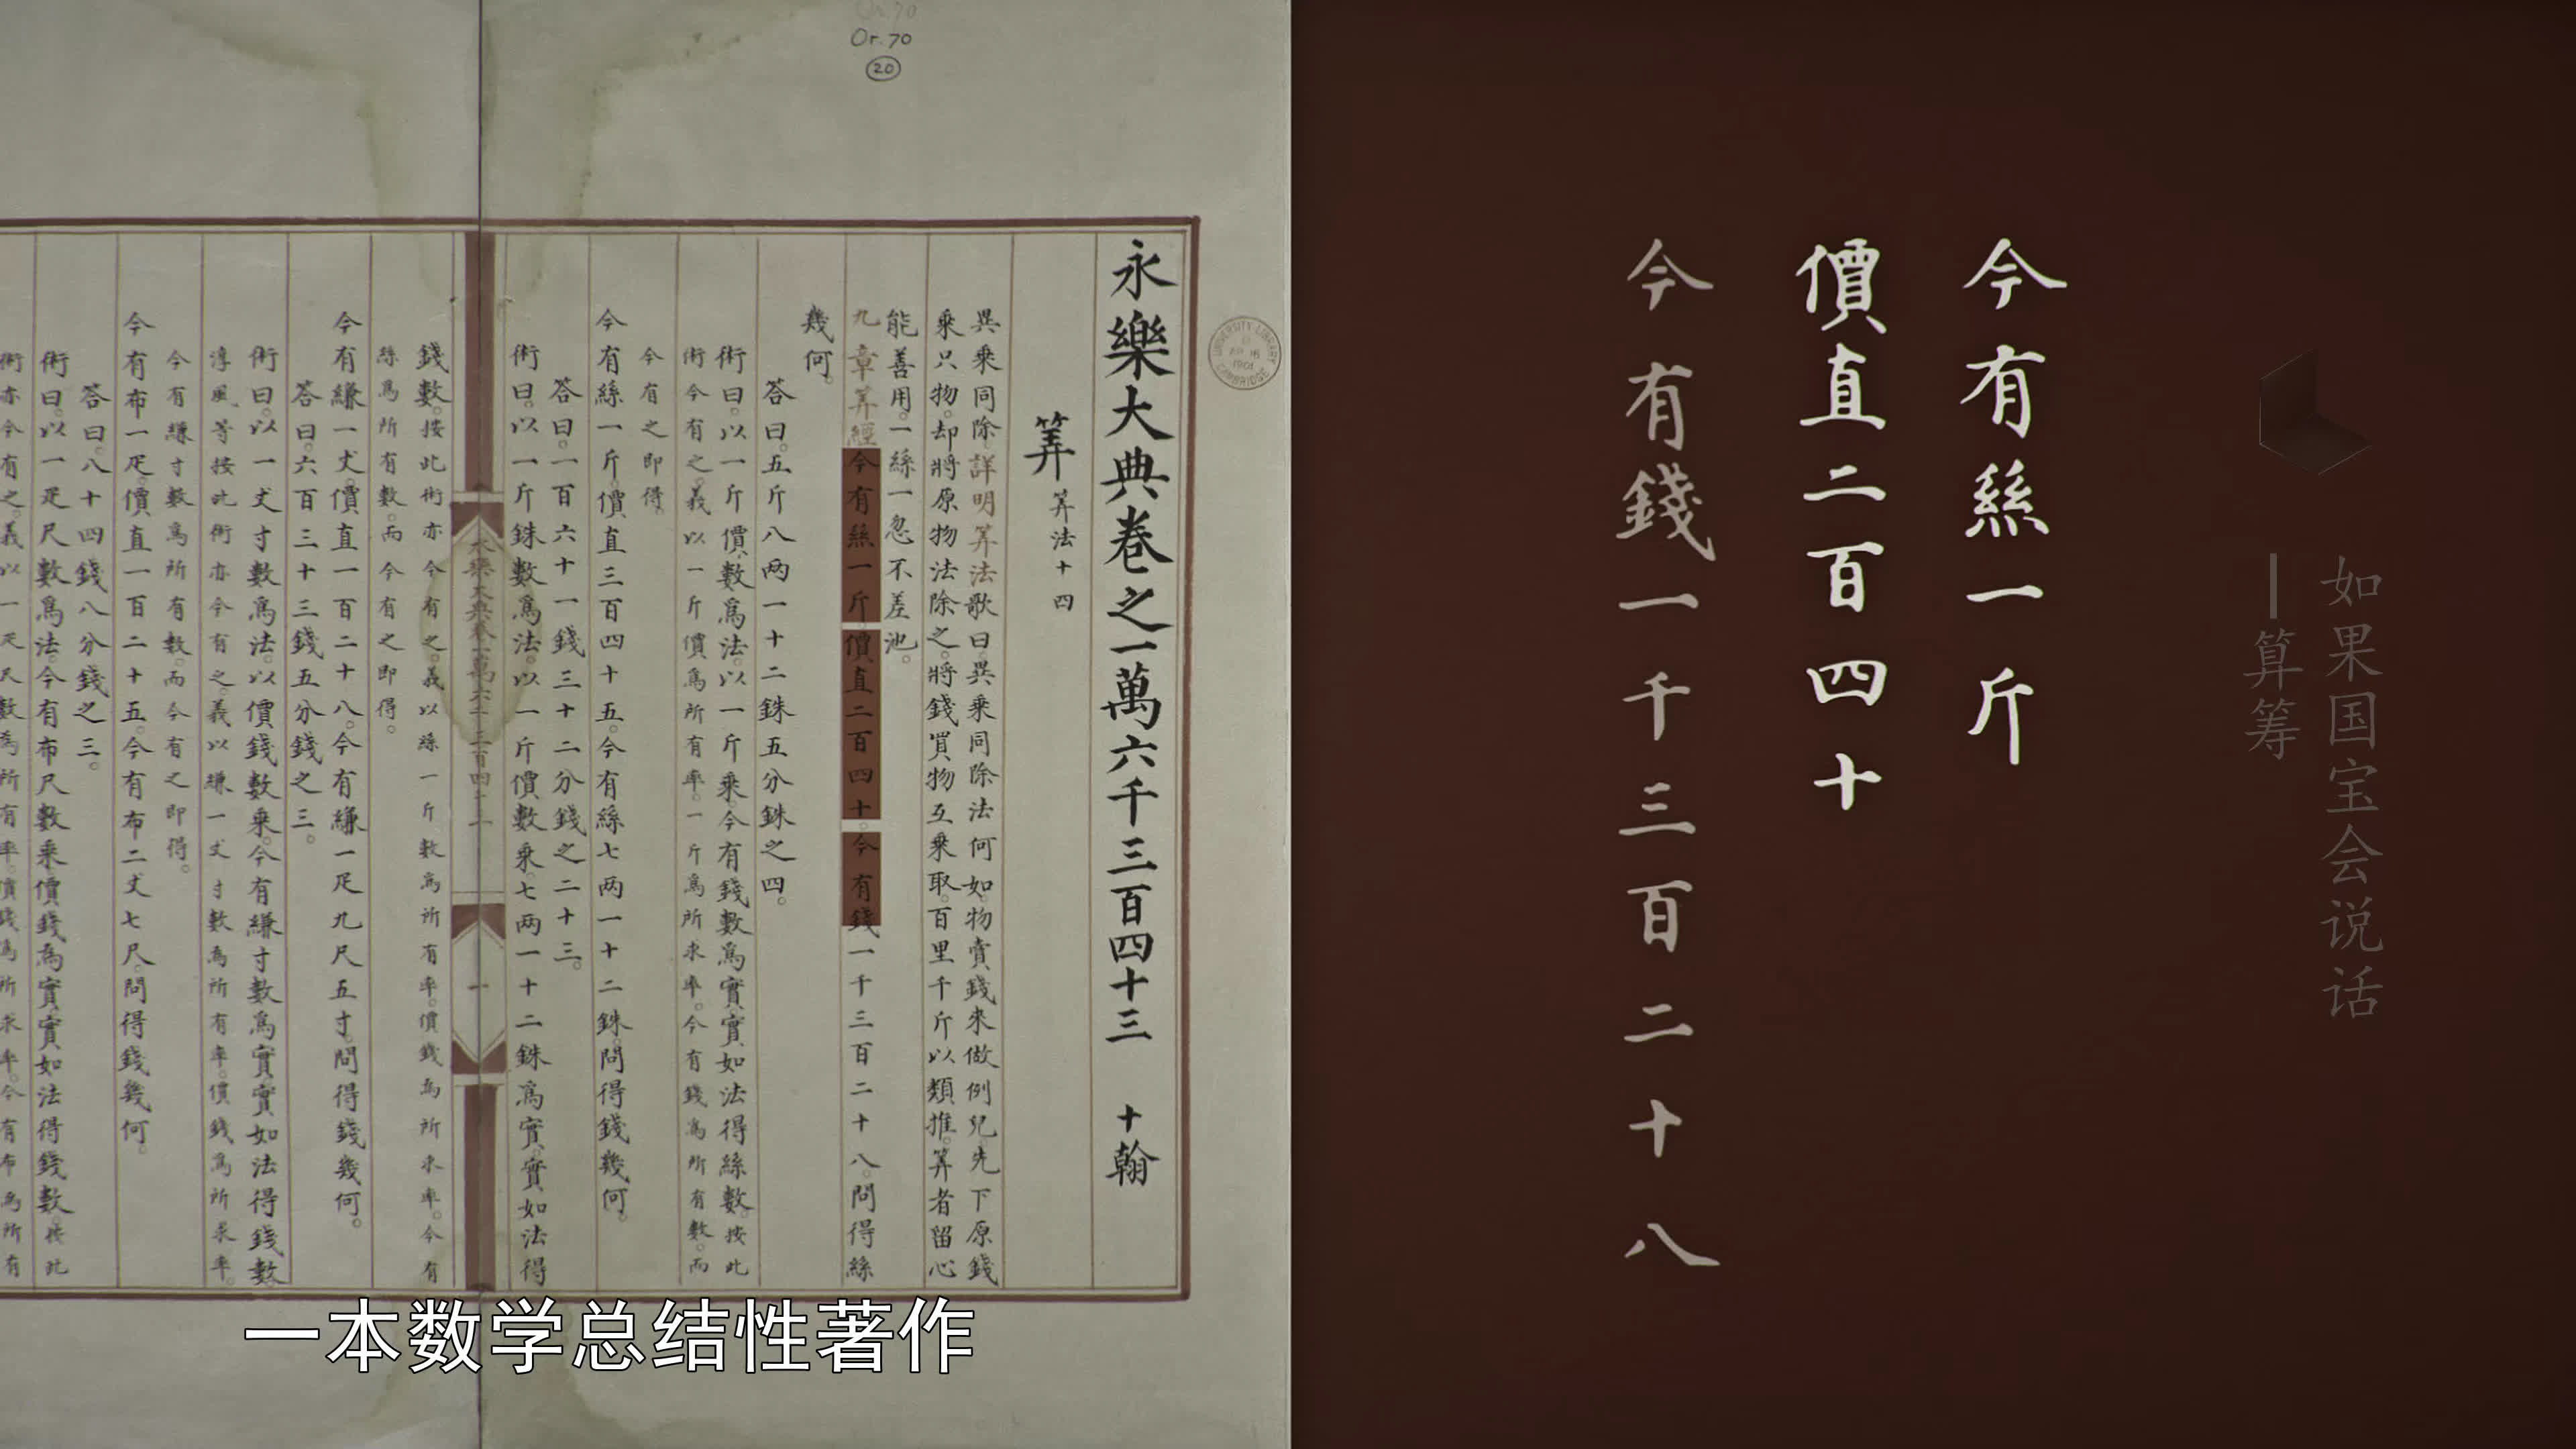 Or.70
20
永樂大典卷之一萬六千三百四十三 十翰
筭 筭法十四
異乘同除詳明筭法歌曰異乘同除法何如物賣錢來做例兒先下原錢
乘只物却將原物法除之將錢買物互乘取百里千斤以類推筭者留心
能善用一絲一忽不差池
九章筭經今有絲一斤價直二百四十今有錢一千三百二十八問得絲
幾何
答曰五斤八两一十二銖五分銖之四
術曰以一斤價數爲法以一斤乘今有錢數爲實實如法得絲數按此
術今有之義以一斤價爲所有率一斤爲所求率今有錢爲所有數而
今有之即得
今有絲一斤價直三百四十五今有絲七两一十二銖問得錢幾何
答曰一百六十一錢三十二分錢之二十三
術曰以一斤銖數爲法以一斤價數乘七两一十二銖爲實實如法得
永樂大典卷一萬六千三百四十三
一
錢數按此術亦今有之義以絲一斤數爲所有率價錢爲所求率今有
絲爲所有數而今有之即得
今有縑一丈價直一百二十八今有縑一疋九尺五寸問得錢幾何
答曰六百三十三錢五分錢之三
術曰以一丈寸數爲法以價錢數乘今有縑寸數爲實實如法得錢數
淳風等按此術亦今有之義以縑一丈寸數爲所有率價錢爲所求率
今有縑寸數爲所有數而今有之即得
今有布一疋價直一百二十五今有布二丈七尺問得錢幾何
答曰八十四錢八分錢之三
術曰以一疋尺數爲法今有布尺數乘價錢爲實實如法得錢數按此
術亦今有之義以一疋尺數爲所有率價錢爲所求率今有布爲所有
UNIVERSITY LIBRARY CAMBRIDGE
今有絲一斤
價直二百四十
今有錢一千三百二十八
如果国宝会说话
—算筹
一本数学总结性著作